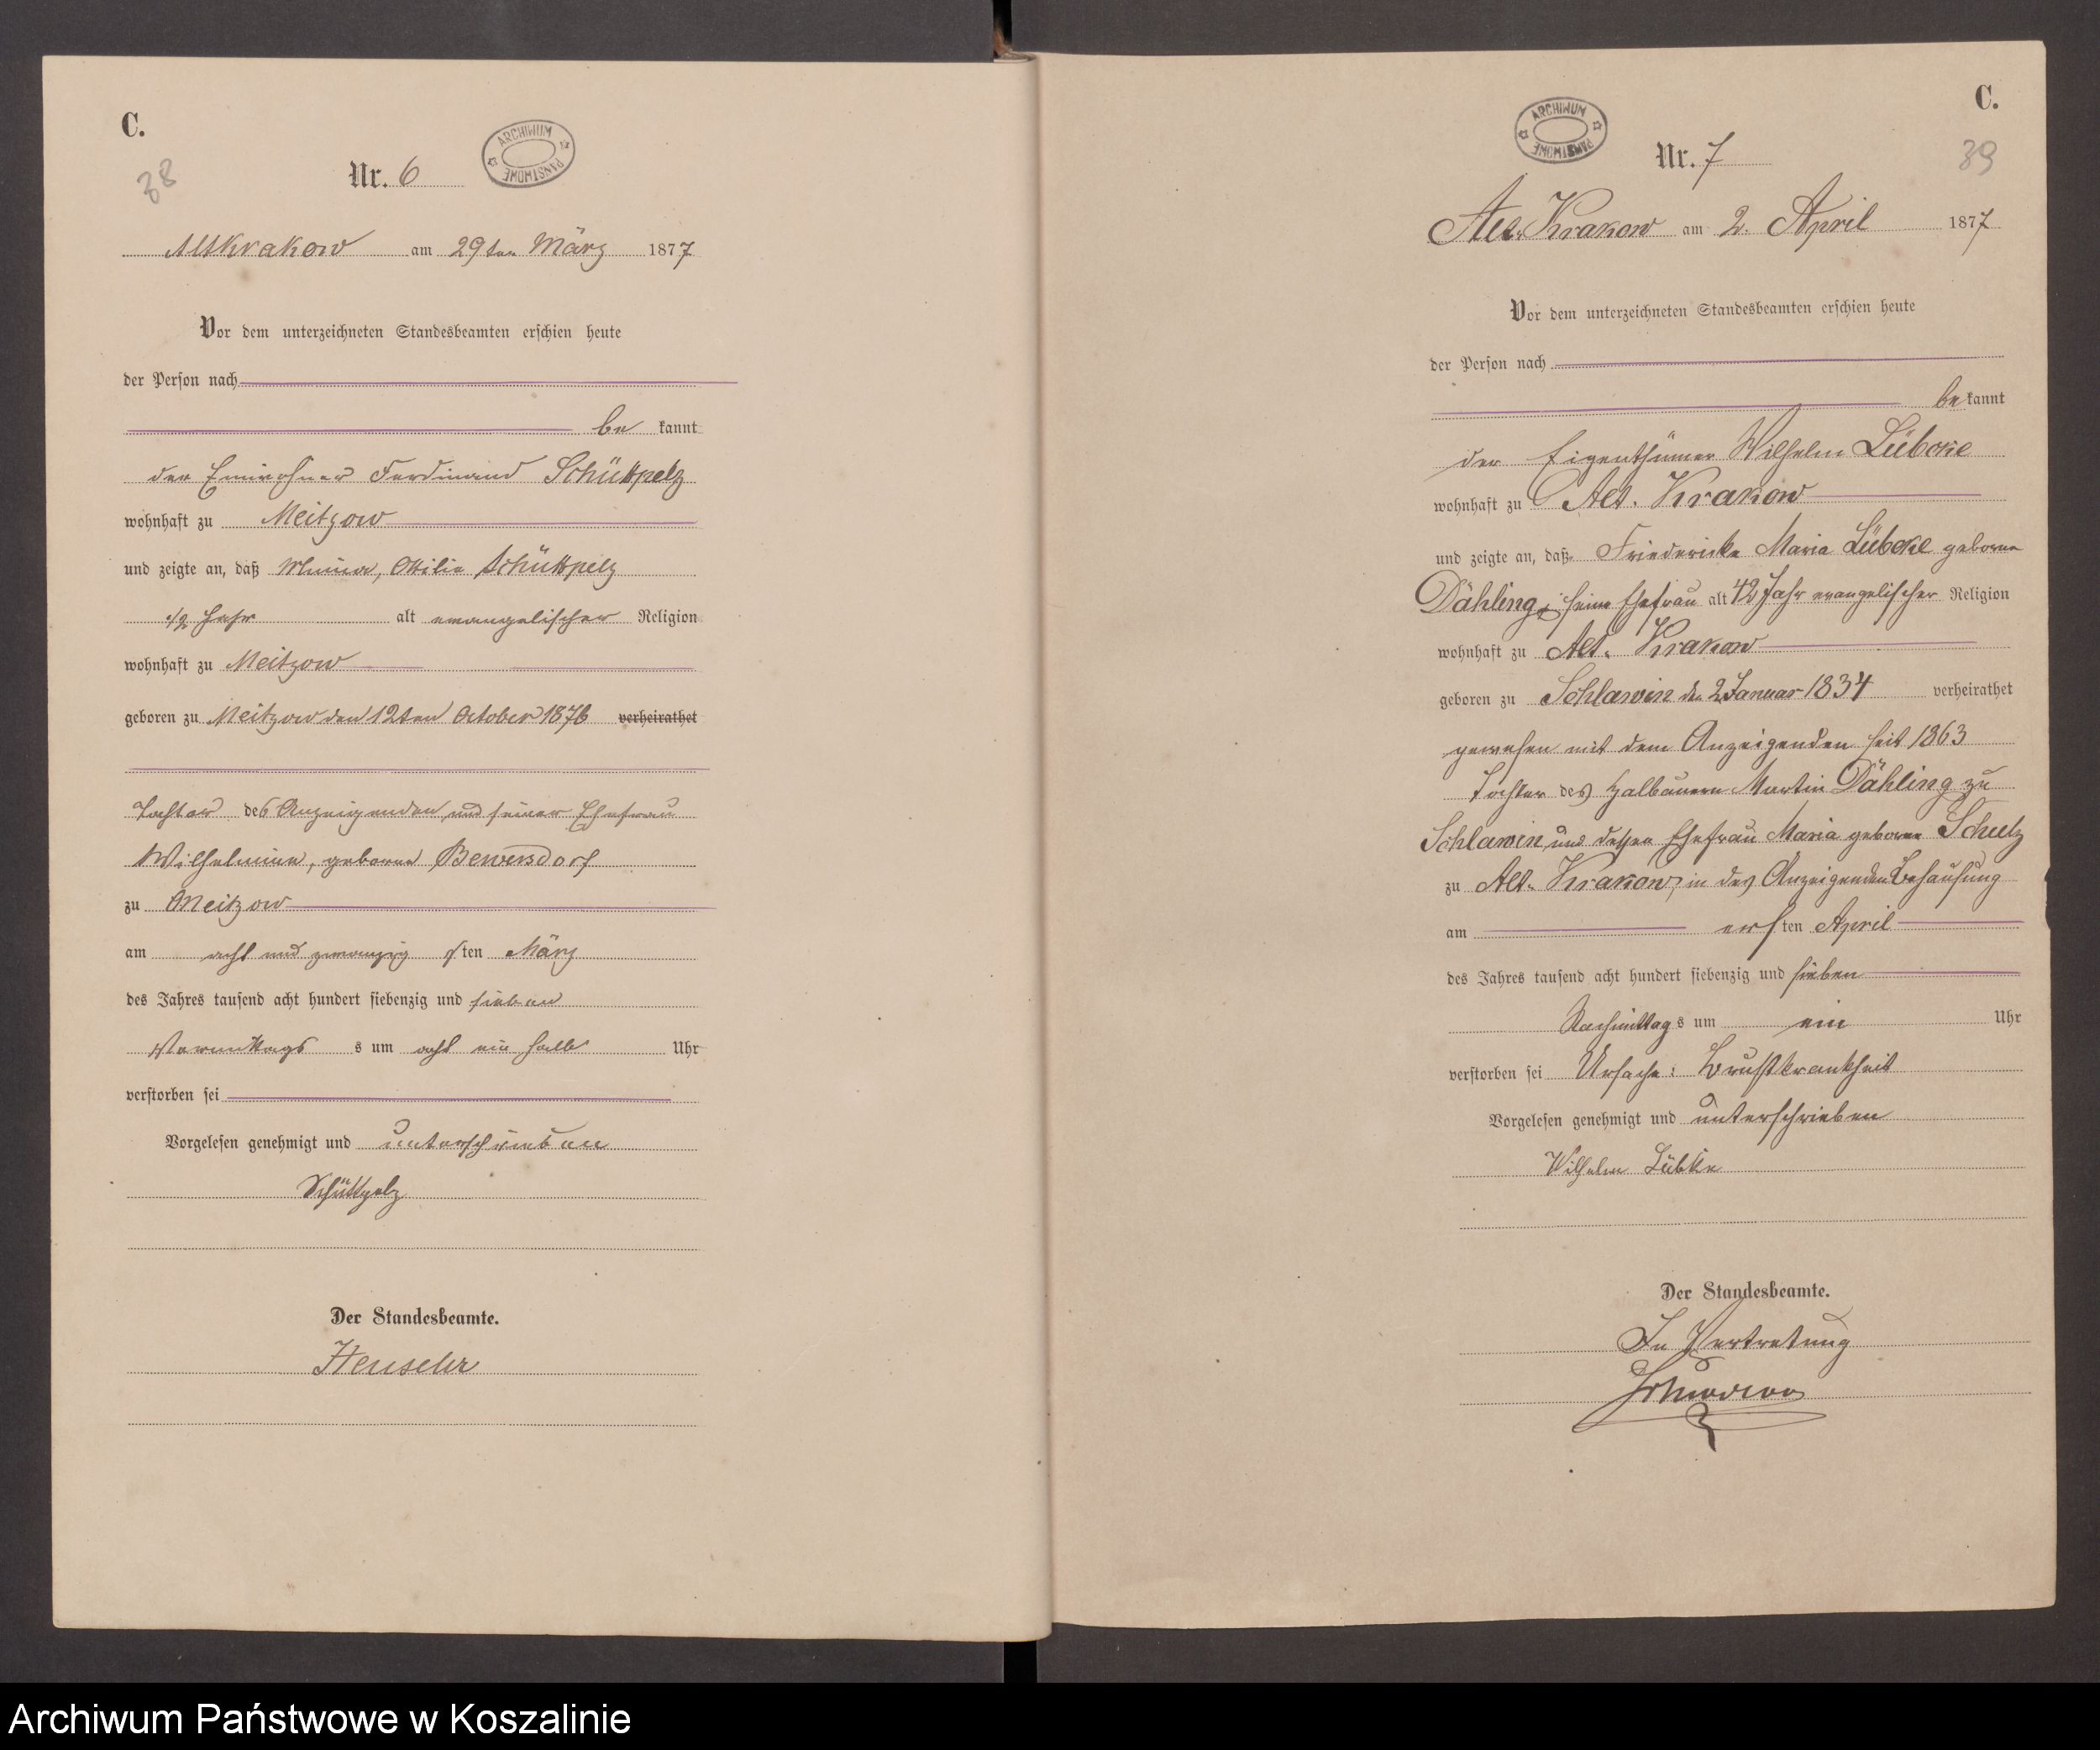 C.
38
Nr. 6
ARCHIWUM PAŃSTWOWE
Altkrakow am 29ten März 1877
Vor dem unterzeichneten Standesbeamten erschien heute
der Person nach
be kannt
der Einwohner Ferdinand Schüttpelz
wohnhaft zu Meitzow
und zeigte an, daß Minna, Ottilie Schüttpelz
1/2 Jahr alt evangelischer Religion
wohnhaft zu Meitzow
geboren zu Meitzow den 12ten October 1876 verheirathet
Tochter des Anzeigenden und seiner Ehefrau
Wilhelmine, geborene Bewersdorf
zu Meitzow
am acht und zwanzig sten März
des Jahres tausend acht hundert siebenzig und sieben
Vormittags s um acht ein halb Uhr
verstorben sei
Vorgelesen genehmigt und unterschrieben
Schüttpelz
Der Standesbeamte.
C.
39
ARCHIWUM PAŃSTWOWE
Nr. 7
Alt-Krakow am 2. April 1877
Vor dem unterzeichneten Standesbeamten erschien heute
der Person nach
be kannt
der Eigenthümer Wilhelm Lübcke
wohnhaft zu Alt. Krakow
und zeigte an, daß Friedericke Maria Lübcke geborne
Dähling, seine Ehefrau alt 42 Jahr evangelischer Religion
wohnhaft zu Alt. Krakow
geboren zu Schlawin den 2 Januar 1834 verheirathet
gewesen mit dem Anzeigenden seit 1863
Tochter des Halbbauern Martin Dähling zu
Schlawin und dessen Ehefrau Maria geborne Schulz
zu Alt. Krakow, in des Anzeigenden Behausung
am ersten April
des Jahres tausend acht hundert siebenzig und sieben
Nachmittags um ein Uhr
verstorben sei Ursache: Brustkrankheit
Vorgelesen genehmigt und unterschrieben
Wilhelm Lübke
Der Standesbeamte.
In Vertretung
Archiwum Państwowe w Koszalinie